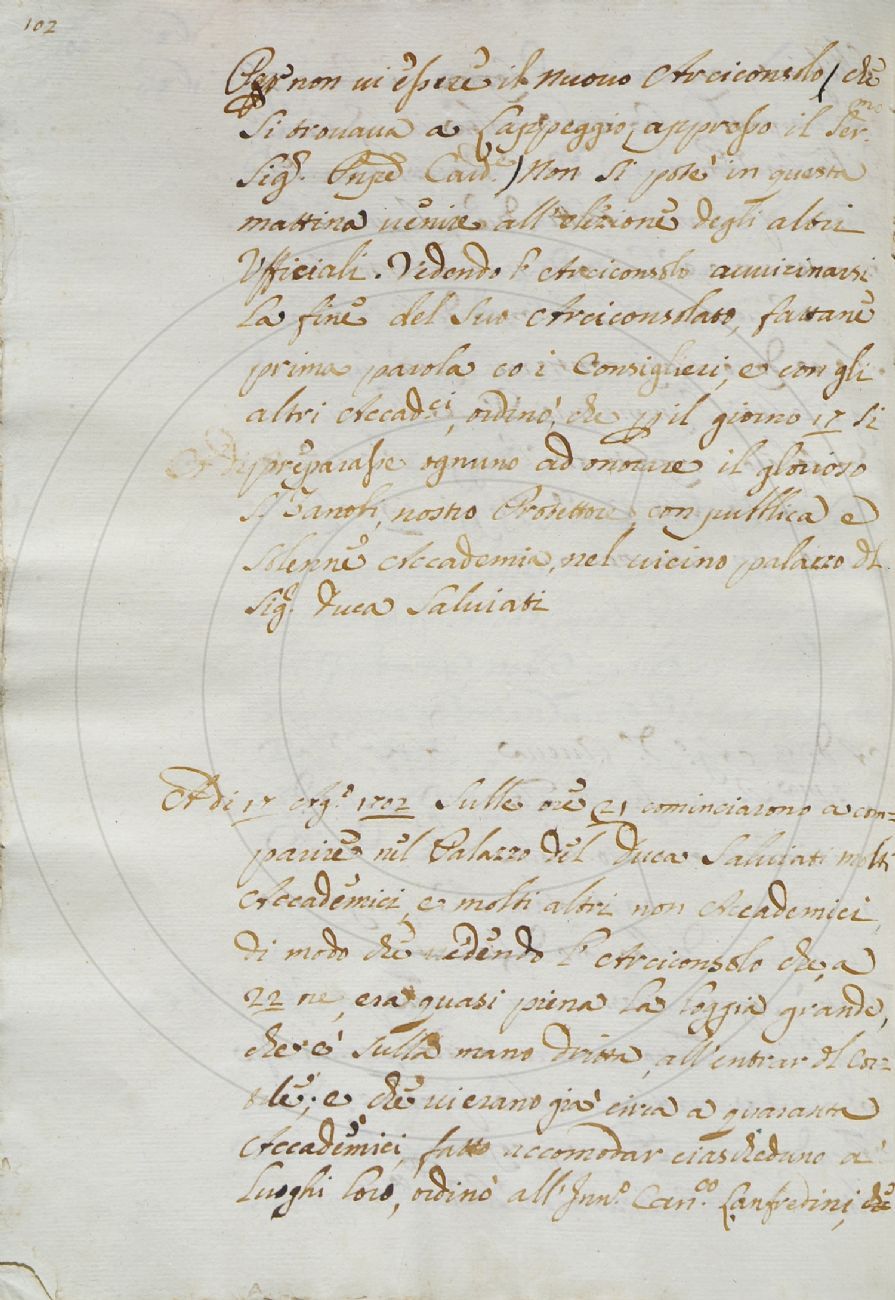 102
Per non vi essere il nuovo Arciconsolo (che
si trovava a Lappeggio appresso il Ser.mo
Sig.r Prīpe Card.e) non si potè in questa
mattina venire all'elezione degli altri
Vfficiali. Vedendo l'Arciconsolo avvicinarsi
la fine del suo Arciconsolato, fattane
prima parola co i Consiglieri, e con gli
altri Accad.ci, ordinò, che p il giorno 17 si
preparasse ognuno ad onorare il glorioso
S. Zanobi, nostro Protettore, con pubblica e
solenne Accademia, nel vicino palazzo dl
Sig.r Duca Salviati
A di 17 Ag.o 1702 Sulle ore 21 cominciarono a com=
parire nel Palazzo del Duca Salviati molti
Accademici, e molti altri non Accademici,
di modo che vedendo l'Arciconsolo che, a
22 ne, era quasi piena la loggia grande,
che è sulla mano dritta, all'entrar dl Cor=
tile; e che vi erano già circa a quaranta
Accademici, fatto accomodar ciascheduno a
luoghi loro, ordinò all'Inn.o Can.co Lanfredini, che